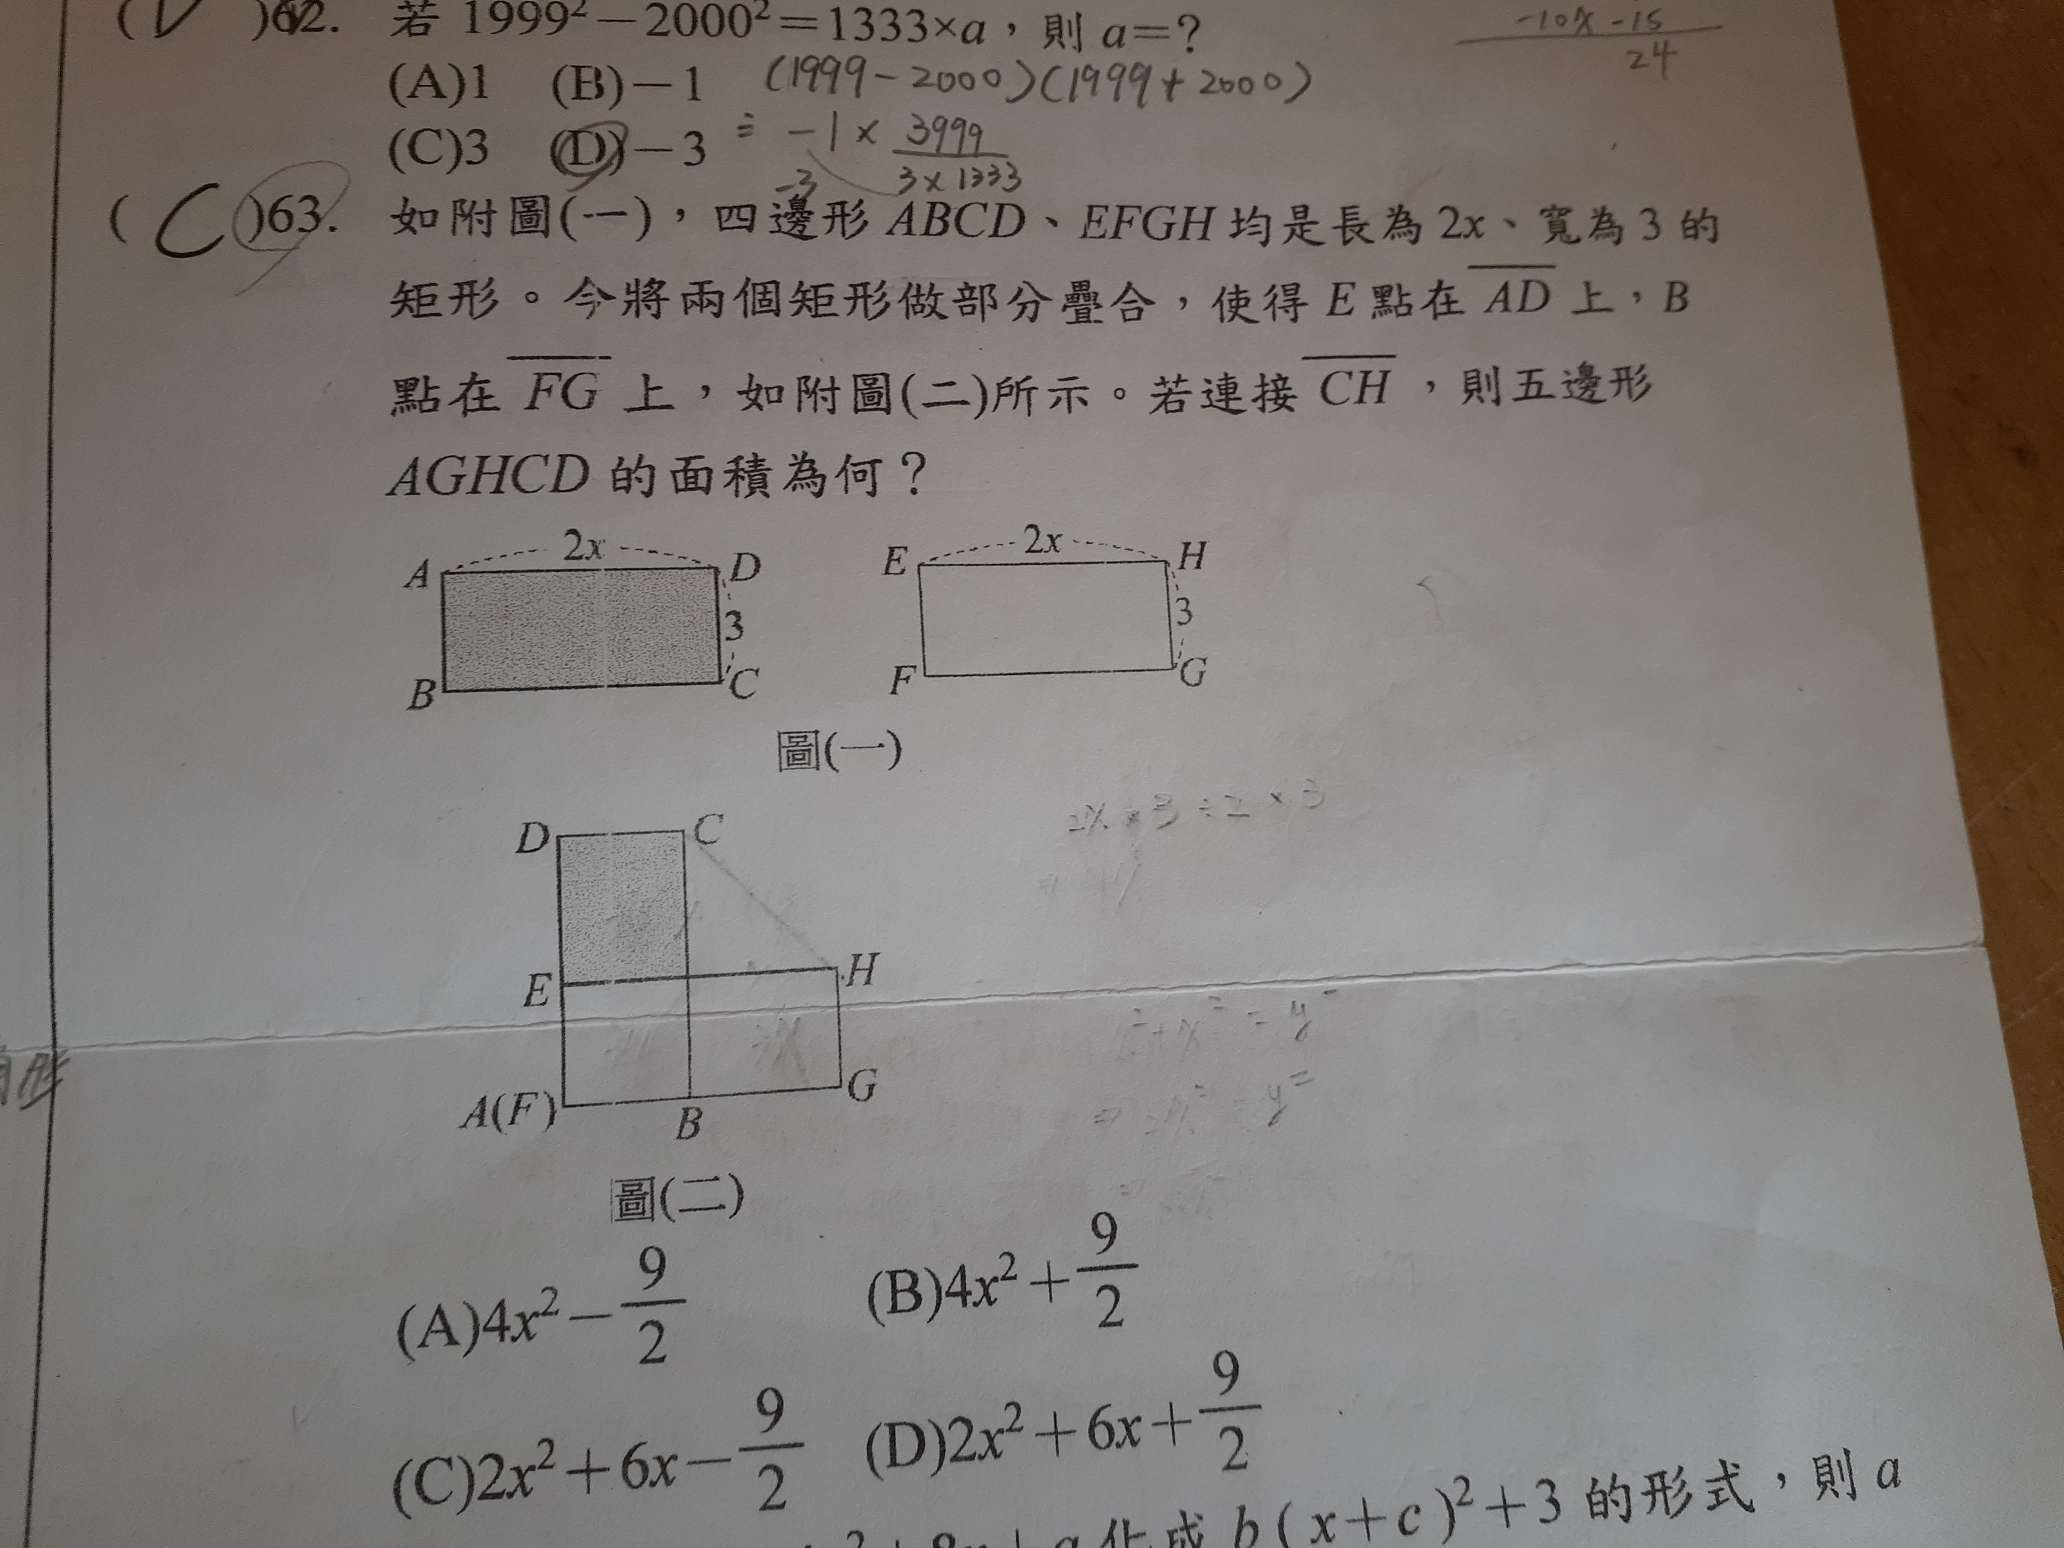 -10x -15
24
62. 若 1999² － 2000² ＝ 1333×a ，則 a＝？
(A)1 (B)－1 (1999－2000)(1999＋2000)
(C)3 (D)－3 -1 × 3999
-3 3×1333
( C )63. 如附圖(一)，四邊形 ABCD、EFGH 均是長為 2x、寬為 3 的
矩形。今將兩個矩形做部分疊合，使得 E 點在 AD 上，B
點在 FG 上，如附圖(二)所示。若連接 CH ，則五邊形
AGHCD 的面積為何？
A 2x D E 2x H
3 3
B C F G
圖(一)
2x × 3 ÷ 2 × 3
D C
E H
A(F) B G
圖(二)
(A)4x²－9/2 (B)4x²＋9/2
(C)2x²＋6x－9/2 (D)2x²＋6x＋9/2
化成 b(x＋c)²＋3 的形式，則 a